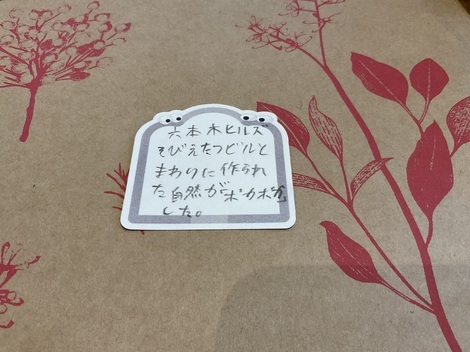 六本木ヒルズ
そびえたつビルと
まわりに作られ
た自然がポカポカ
した。